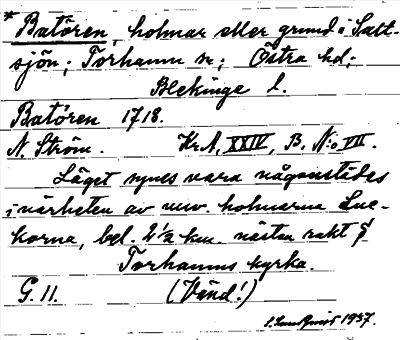 * Batören, holmar eller grund i Salt-
sjön; Torhamn sn; Östra hd;
Blekinge l.
Batören 1718.
N. Ström. Kr.A, XXIV, B. N:o VII.
Läget synes vara någonstädes
i närheten av nuv. holmarna Lue-
korna, bel. 2 1/2 km. nästan rakt
Torhamns kyrka.
G. 11. (Vänd!)
1937.